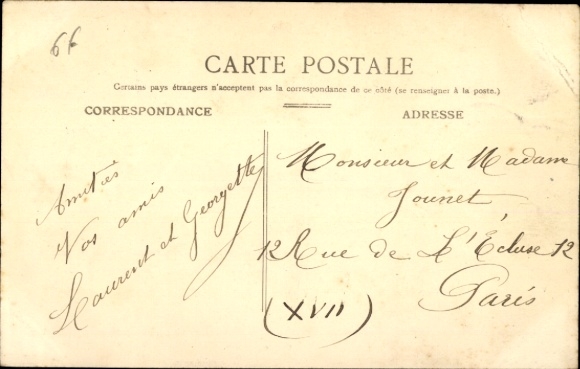 6f
CARTE POSTALE
Certains pays étrangers n'acceptent pas la correspondance de ce côté (se renseigner à la poste.)
CORRESPONDANCE
ADRESSE
Amitiés
Vos amis
Laurent et Georgette
Monsieur et Madame
Jounet
12 Rue de L'Écluse 12
Paris
(XVII)